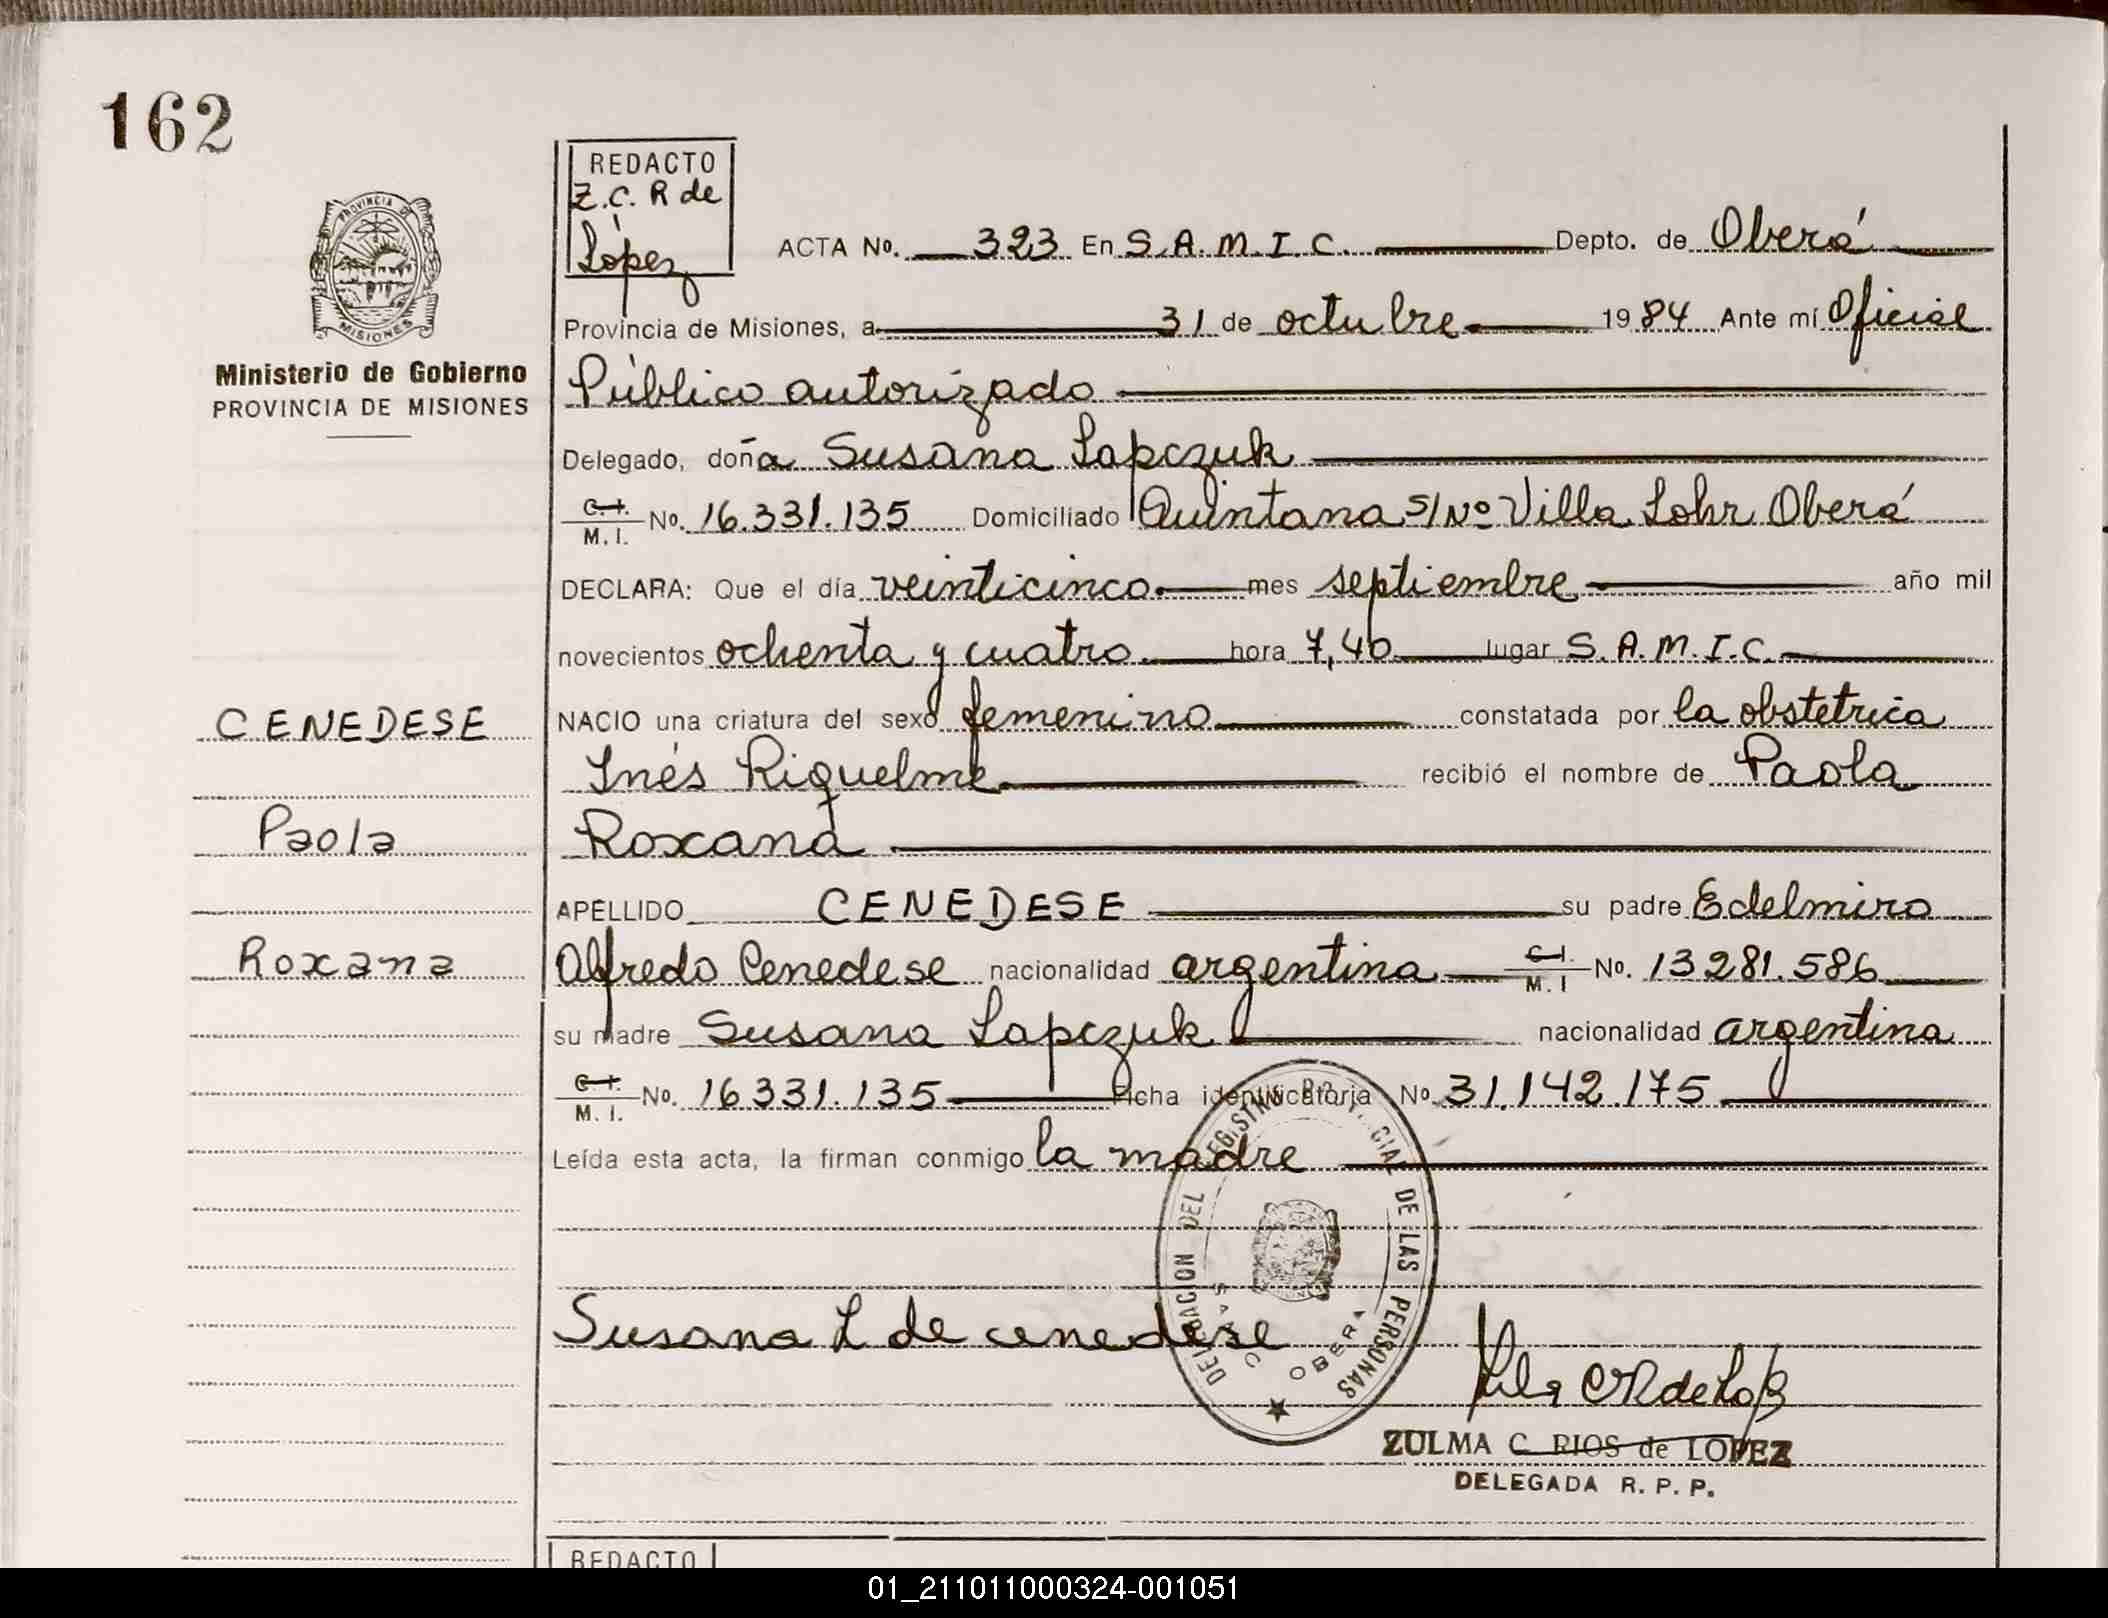 162
REDACTO
Z.C. R de
López
PROVINCIA DE
MISIONES
Ministerio de Gobierno
PROVINCIA DE MISIONES
ACTA No. 323 En S.A.M.I.C. Depto. de Oberá
Provincia de Misiones, a 31 de octubre 1984 Ante mí Oficial
Público autorizado
Delegado, doña Susana Lapczuk
C.I. M.I. No. 16.331.135 Domiciliado Quintana S/Nº Villa Lohr Oberá
DECLARA: Que el día veinticinco mes septiembre año mil
novecientos ochenta y cuatro hora 7,40 lugar S.A.M.I.C.
CENEDESE NACIO una criatura del sexo femenino constatada por la obstetrica
Inés Riquelme recibió el nombre de Paola
Paola Roxana
APELLIDO CENEDESE su padre Edelmiro
Roxana Alfredo Cenedese nacionalidad argentina C.I. M.I No. 13281.586
su madre Susana Lapczuk nacionalidad argentina
C.I. M.I. No. 16331.135 Ficha identificatoria No. 31.142.175
Leída esta acta, la firman conmigo la madre
DELEGACION DEL REGISTRO PROVINCIAL DE LAS PERSONAS
OBERA
Susana L de cenedese
ZULMA C. RIOS de LOPEZ
DELEGADA R. P. P.
REDACTO
01_211011000324-001051